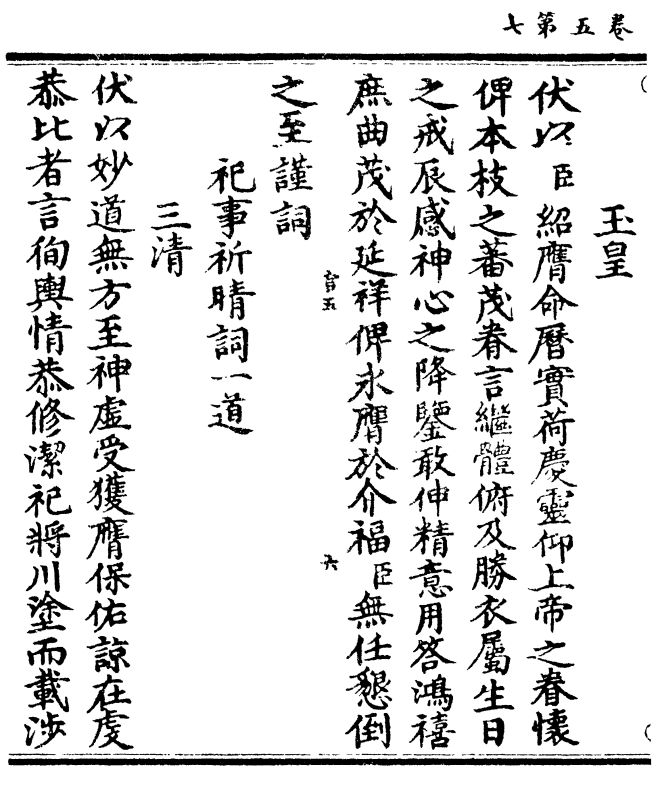 卷五第七
玉皇
伏以臣紹膺命曆實荷慶靈仰上帝之眷懷
俾本枝之蕃茂眷言繼體俯及勝衣屬生日
之戒辰感神心之降鑒敢伸精意用答鴻禧
庶曲茂於延祥俾永膺於介福臣無任懇倒
之至謹詞
祀事祈晴詞一道
三清
伏以妙道無方至神虛受獲膺保佑諒在虔
恭比者言徇輿情恭修潔祀將川塗而載涉
六